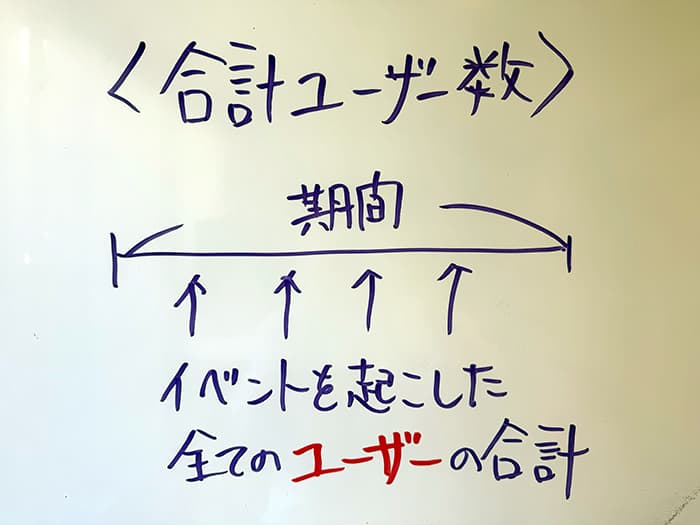 〈合計ユーザー数〉
期間
イベントを起こした
全てのユーザーの合計